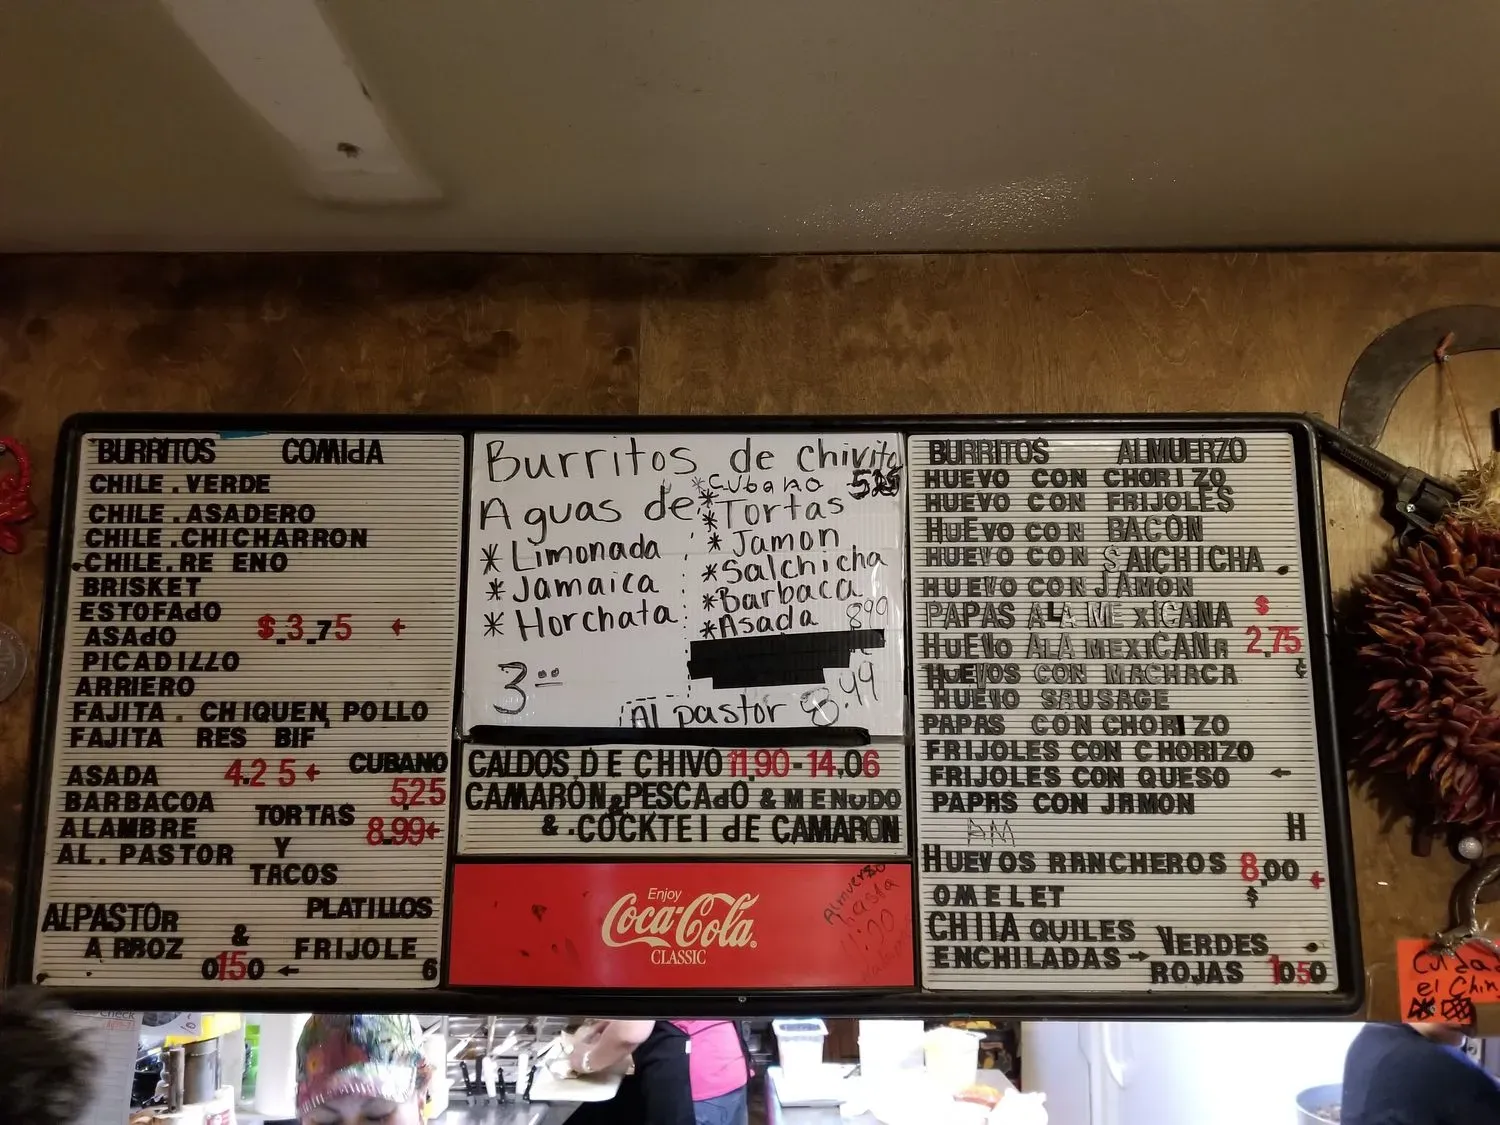 BURRITOS COMIdA
CHILE.VERDE
CHILE.ASADERO
CHILE.CHICHARRON
CHILE.RE ENO
BRISKET
ESTOFAdO
ASAdO $.3.75 ←
PICADILLO
ARRIERO
FAJITA. CHIQUEN, POLLO
FAJITA RES BIF
CUBANO
ASADA 4.25 ←
525
BARBACOA
TORTAS
ALAMBRE 8.99←
AL. PASTOR Y
TACOS
PLATILLOS
ALPASTOr
&
ARROZ FRIJOLE
0150 ← 6
Burritos de chivito
*Cubano 525
Aguas de: *Tortas
*Limonada *Jamon
*Jamaica *Salchicha
*Horchata *Barbaca
*Asada 899
3.00
Al pastor 8.99
CALDOS DE CHIVO 11.90-14.06
CAMARON&PESCAdO & MENuDO
& .COCKTEl dE CAMARON
Enjoy
Coca-Cola
CLASSIC
Almuerzo
hasta
11:20
BURRITOS ALMUERZO
HUEVO CON CHORIZO
HUEVO CON FRIJOLES
HUEVO CON BACON
HUEVO CON SAlCHICHA
HUEVO CON JAMON
PAPAS ALA MExICANA $
HUEVO ALA MEXICANA 2.75
HUEVOS CON MACHACA
HUEVO SAUSAGE
PAPAS CON CHORIZO
FRIJOLES CON CHORIZO
FRIJOLES CON QUESO ←
PAPAS CON JAMON
AM H
HUEVOS RANCHEROS 8.00 ←
OMELET $
CHIlA QUILES VERDES
ENCHILADAS→ ROJAS 1050
Cuida
el Chin